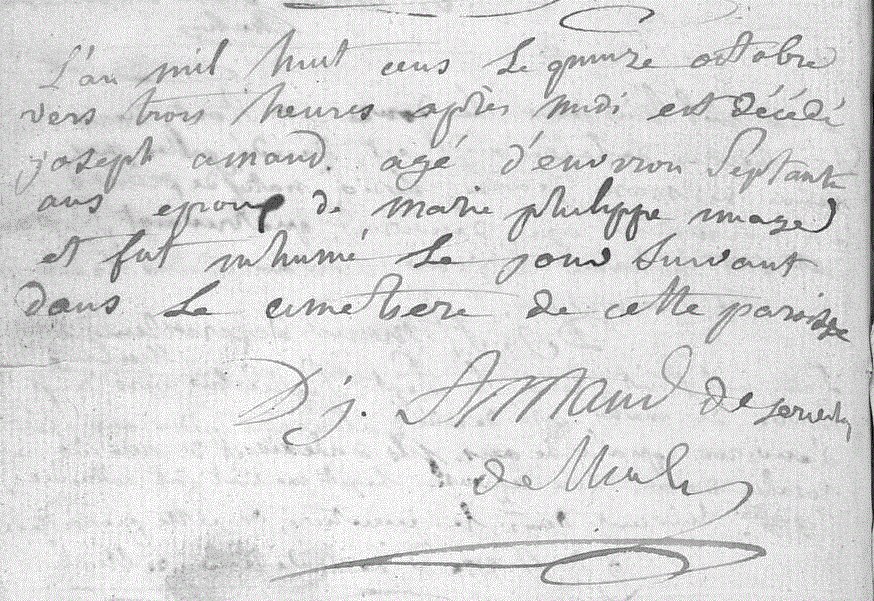 L'an mil huit cens le quinze octobre
vers trois heures après midi est décédé
joseph amand. agé d'environ Septante
ans epoux de marie philippe mage
et fut inhumé le jour suivant
dans le cimetiere de cette paroisse
D. j. Amand
de